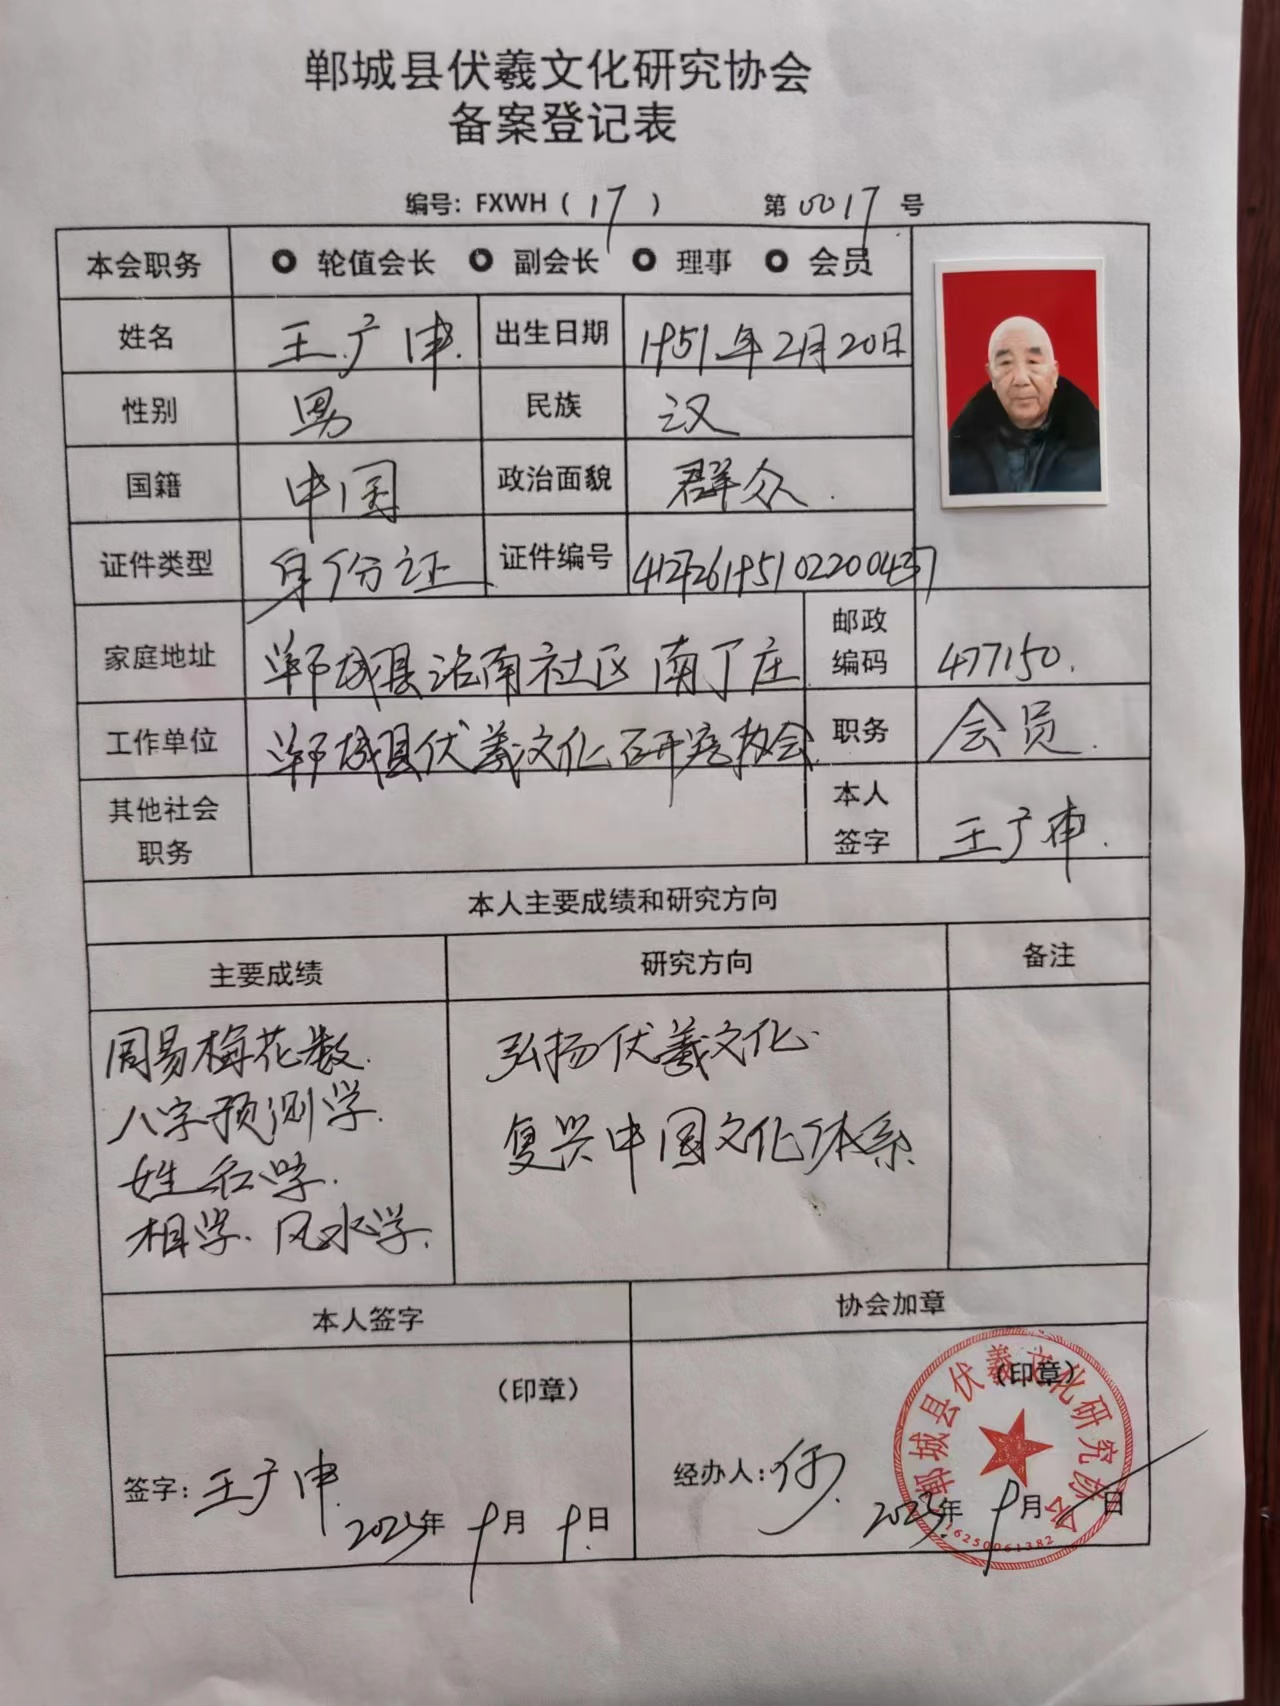 郸城县伏羲文化研究协会
备案登记表
编号: FXWH ( 17 ) 第 0017 号
本会职务 轮值会长 副会长 理事 会员
姓名 王广申 出生日期 1951年2月20日
性别 男 民族 汉
国籍 中国 政治面貌 群众
证件类型 身份证 证件编号
家庭地址 郸城县洺南社区南丁庄 邮政编码 477150
工作单位 郸城县伏羲文化研究协会 职务 会员
其他社会职务 本人签字 王广申
本人主要成绩和研究方向
主要成绩 研究方向 备注
周易梅花数 弘扬伏羲文化
八字预测学 复兴中国文化体系
姓名学
相学、风水学
本人签字 协会加章
(印章) (印章)
签字: 王广申 经办人:
2023年 9月 9日 2023年 9月 日
郸城县伏羲文化研究协会
16250061382